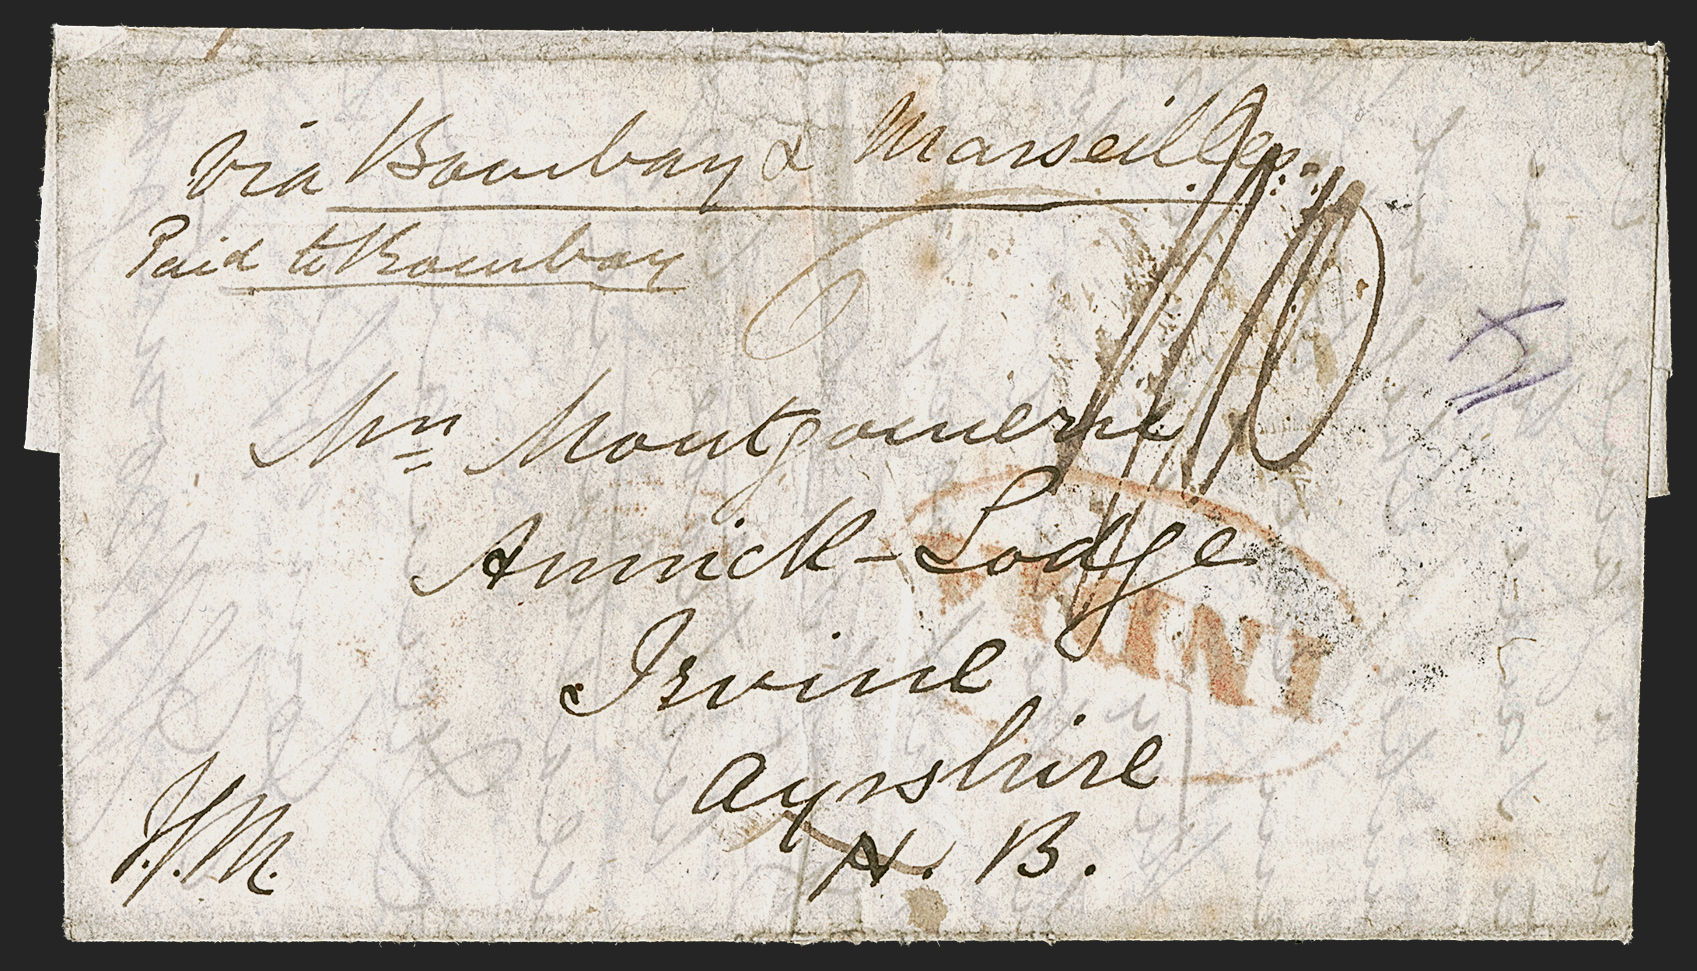 Via Bombay & Marseilles.
Paid to Bombay
Mrs Montgomerie
Annick-Lodge
Irvine
Ayrshire
N. B.
J.M.